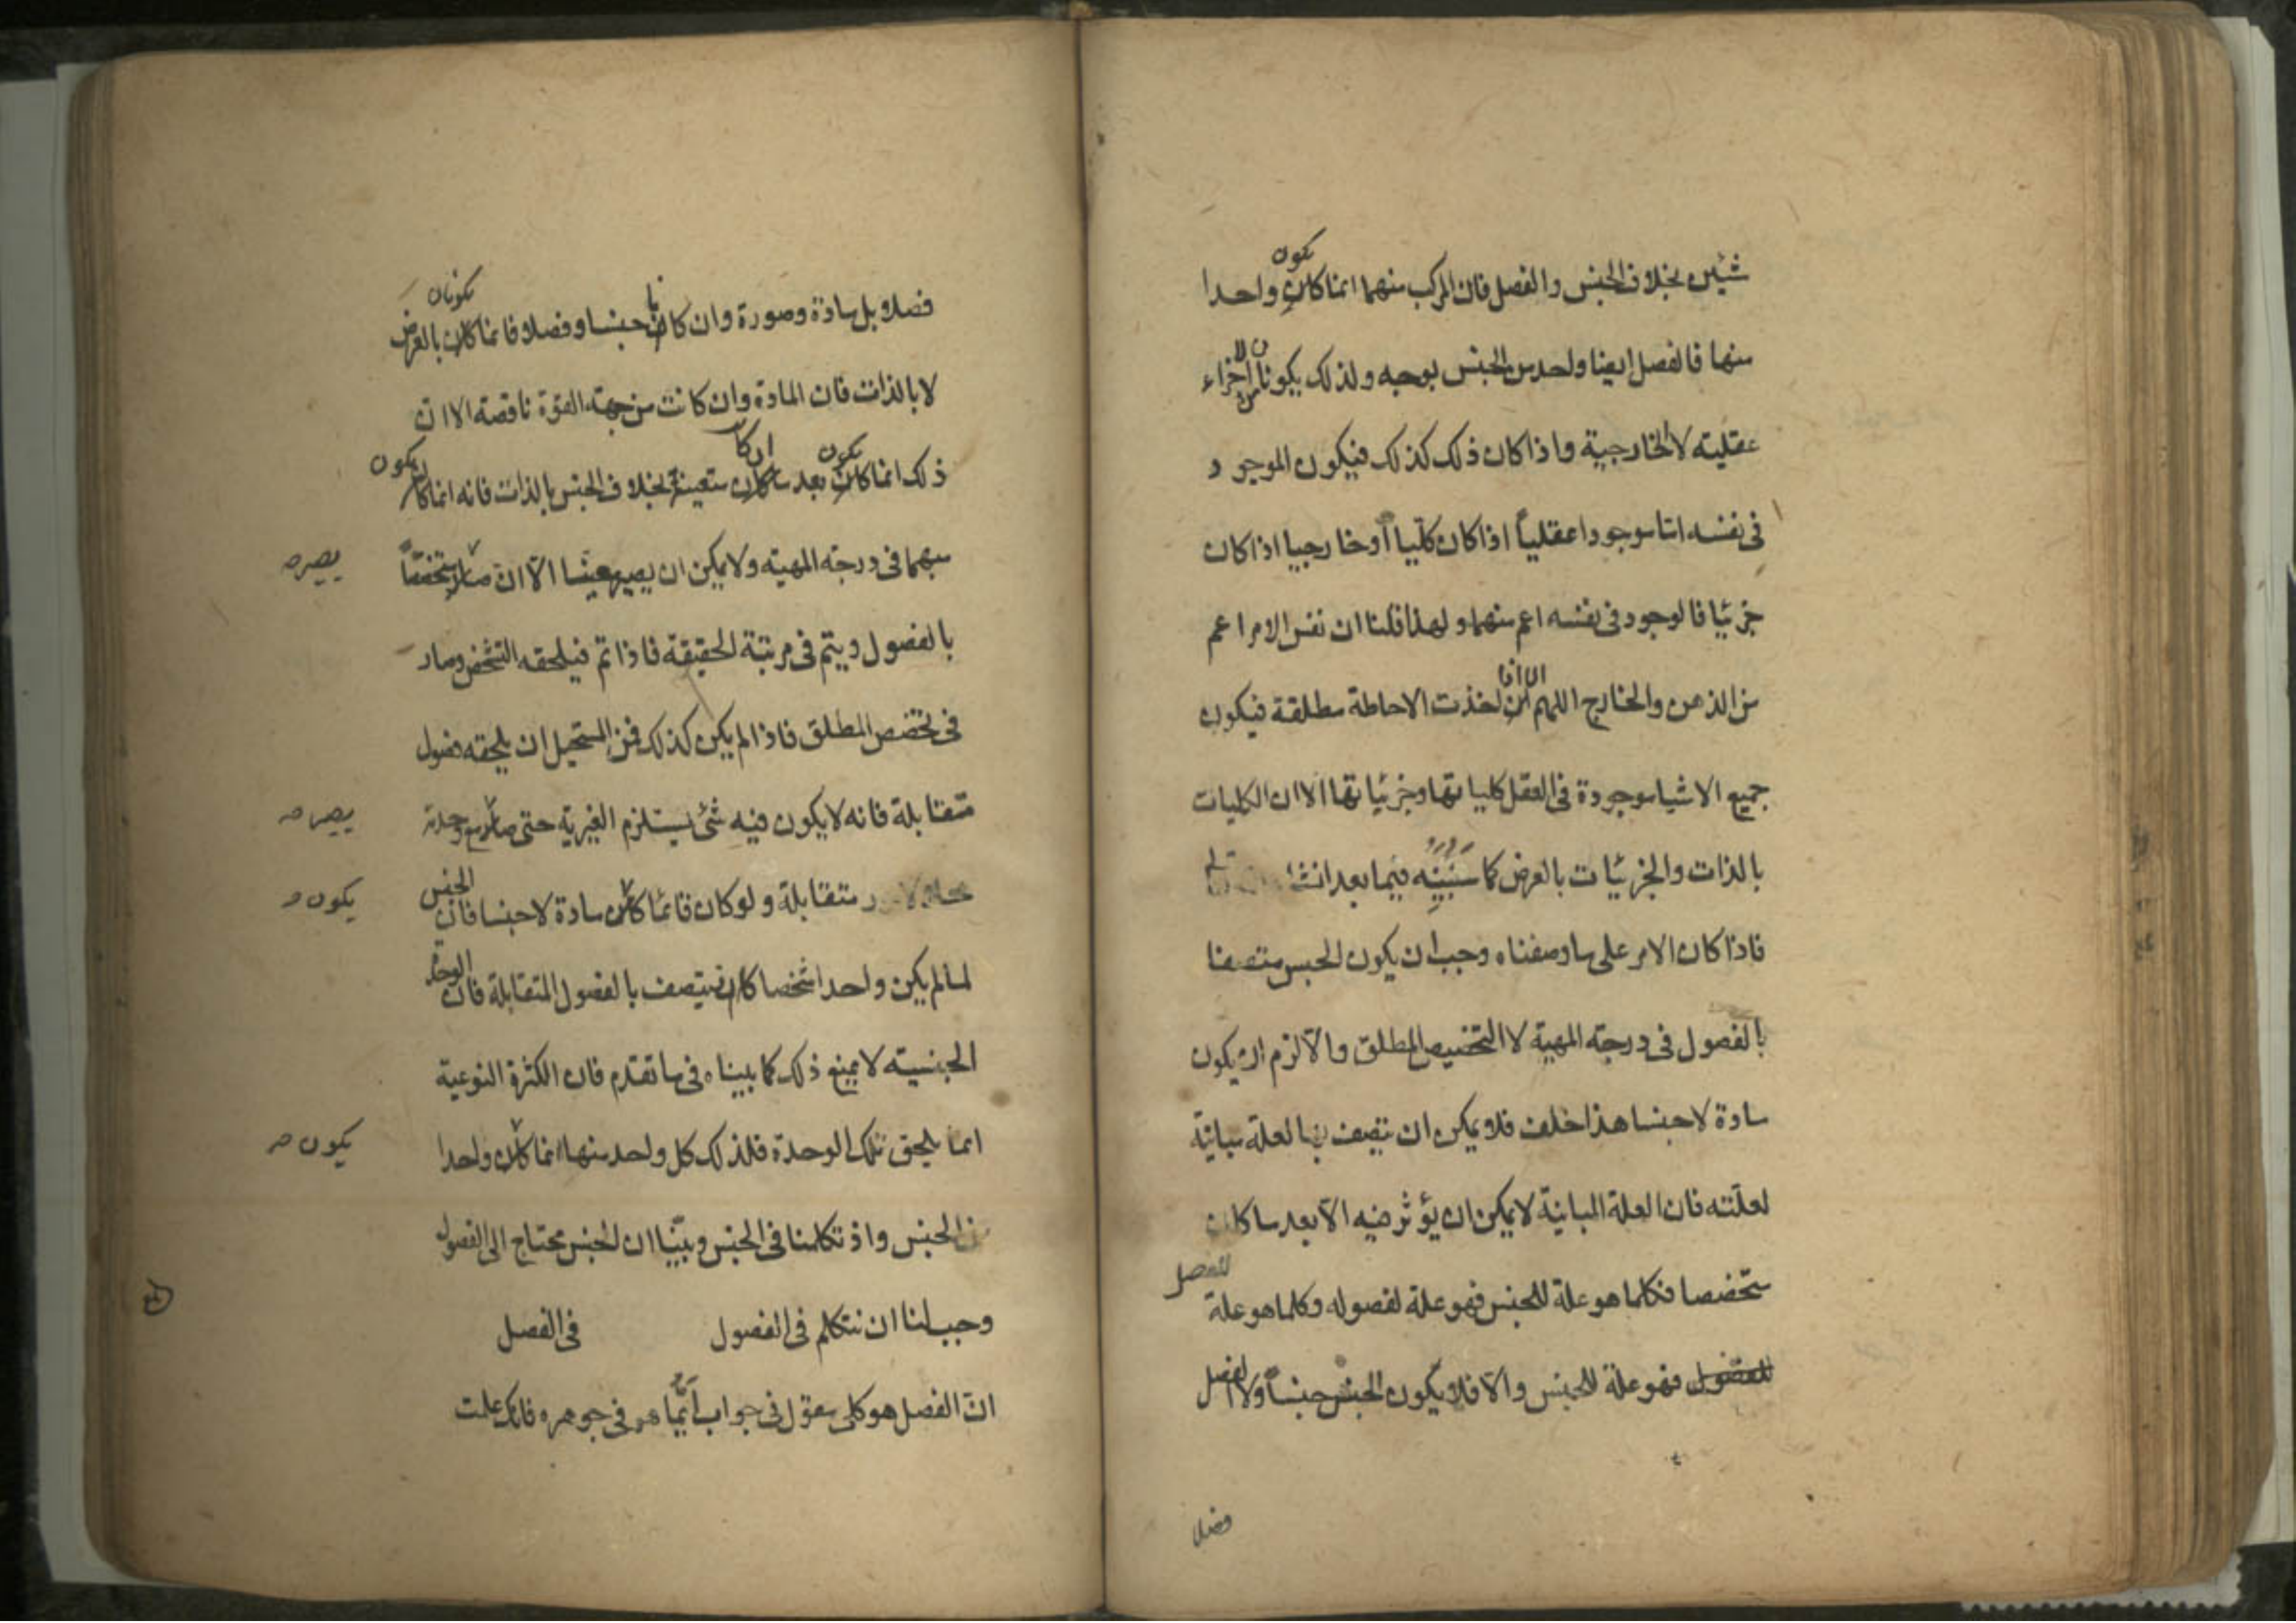 شيئين بخلاف الجنس والفصل فان المركب منهما انما كان يكون واحدا
منها فالفصل ايضا واحد من الجنس بوجه ولذلك يكونان من الاجزاء
عقلية لا الخارجية واذا كان ذلك كذلك فيكون الموجود
فى نفسه اما موجودا عقلياً اذا كان كلّياً أو خارجيا اذا كان
جزئيا فالوجود فى نفسه اعم منهما ولهذا قلنا ان نفس الامر اعم
من الذهن والخارج اللهم الا اذا اخذت الاحاطة مطلقة فيكون
جميع الاشيا موجودة فى العقل كلياتها وجزئياتها الا ان الكليات
بالذات والجزئيات بالعرض كما سنبينه فيما بعد انشا
فاذا كان الامر على ما وصفناه وجب ان يكون الجنس متصفا
بالفصول فى درجة المهية لا التخصيص المطلق والّا لزم ان يكون
مادة لا جنسا هذا خلف فلا يمكن ان يتصف بها لعلة مباينة
لعلّته فان العلة المباينة لا يمكن ان يؤثر فيه الّا بعد ما كان
متخصصا فكلما هو علة للجنس فهو علة لفصوله وكلما هو علة للفصل
للفصول فهو علة للجنس والّا فلا يكون الجنس جنساً ولا الفصل
فصلا
فصلا بل مادة وصورة وان كانا جنسا وفصلا فانما كان يكونان بالعرض
لا بالذات فان المادة وان كانت من جهة القوة ناقصة الا ان
ذلك انما كان يكون بعد ما كان ان كا متعينة بخلاف الجنس بالذات فانه انما كان يكون
مبهما فى درجة المهية ولا يمكن ان يصير معينا الّا ان صار متحققاً يصير صح
بالفصول ويتم فى مرتبة الحقيقة فاذا تم فيلحقه التشخص وصار
فى تخصص المطلق فاذا لم يكن كذلك فمن المستحيل ان يلحقه فصول
متقابلة فانه لا يكون فيه شئ يستلزم الغيرية حتى صار مع وحدته يصير صح
متقابلة ولو كان فانما كان مادة لا جنسا فان الجنس يكون صح
لما لم يكن واحدا شخصا كان يتصف بالفصول المتقابلة فان الوحدة
الجنسية لا يمنع ذلك كما بيناه فى ما تقدم فان الكثرة النوعية
انما يلحق تلك الوحدة فلذلك كل واحد منها انما كان واحدا يكون صح
من الجنس واذ تكلمنا فى الجنس وبيّنا ان الجنس محتاج الى الفصول
وجب لنا ان نتكلم فى الفصول فى الفصل
انّ الفصل هو كلى مقول فى جواب أيّما هو فى جوهره فانك علمت